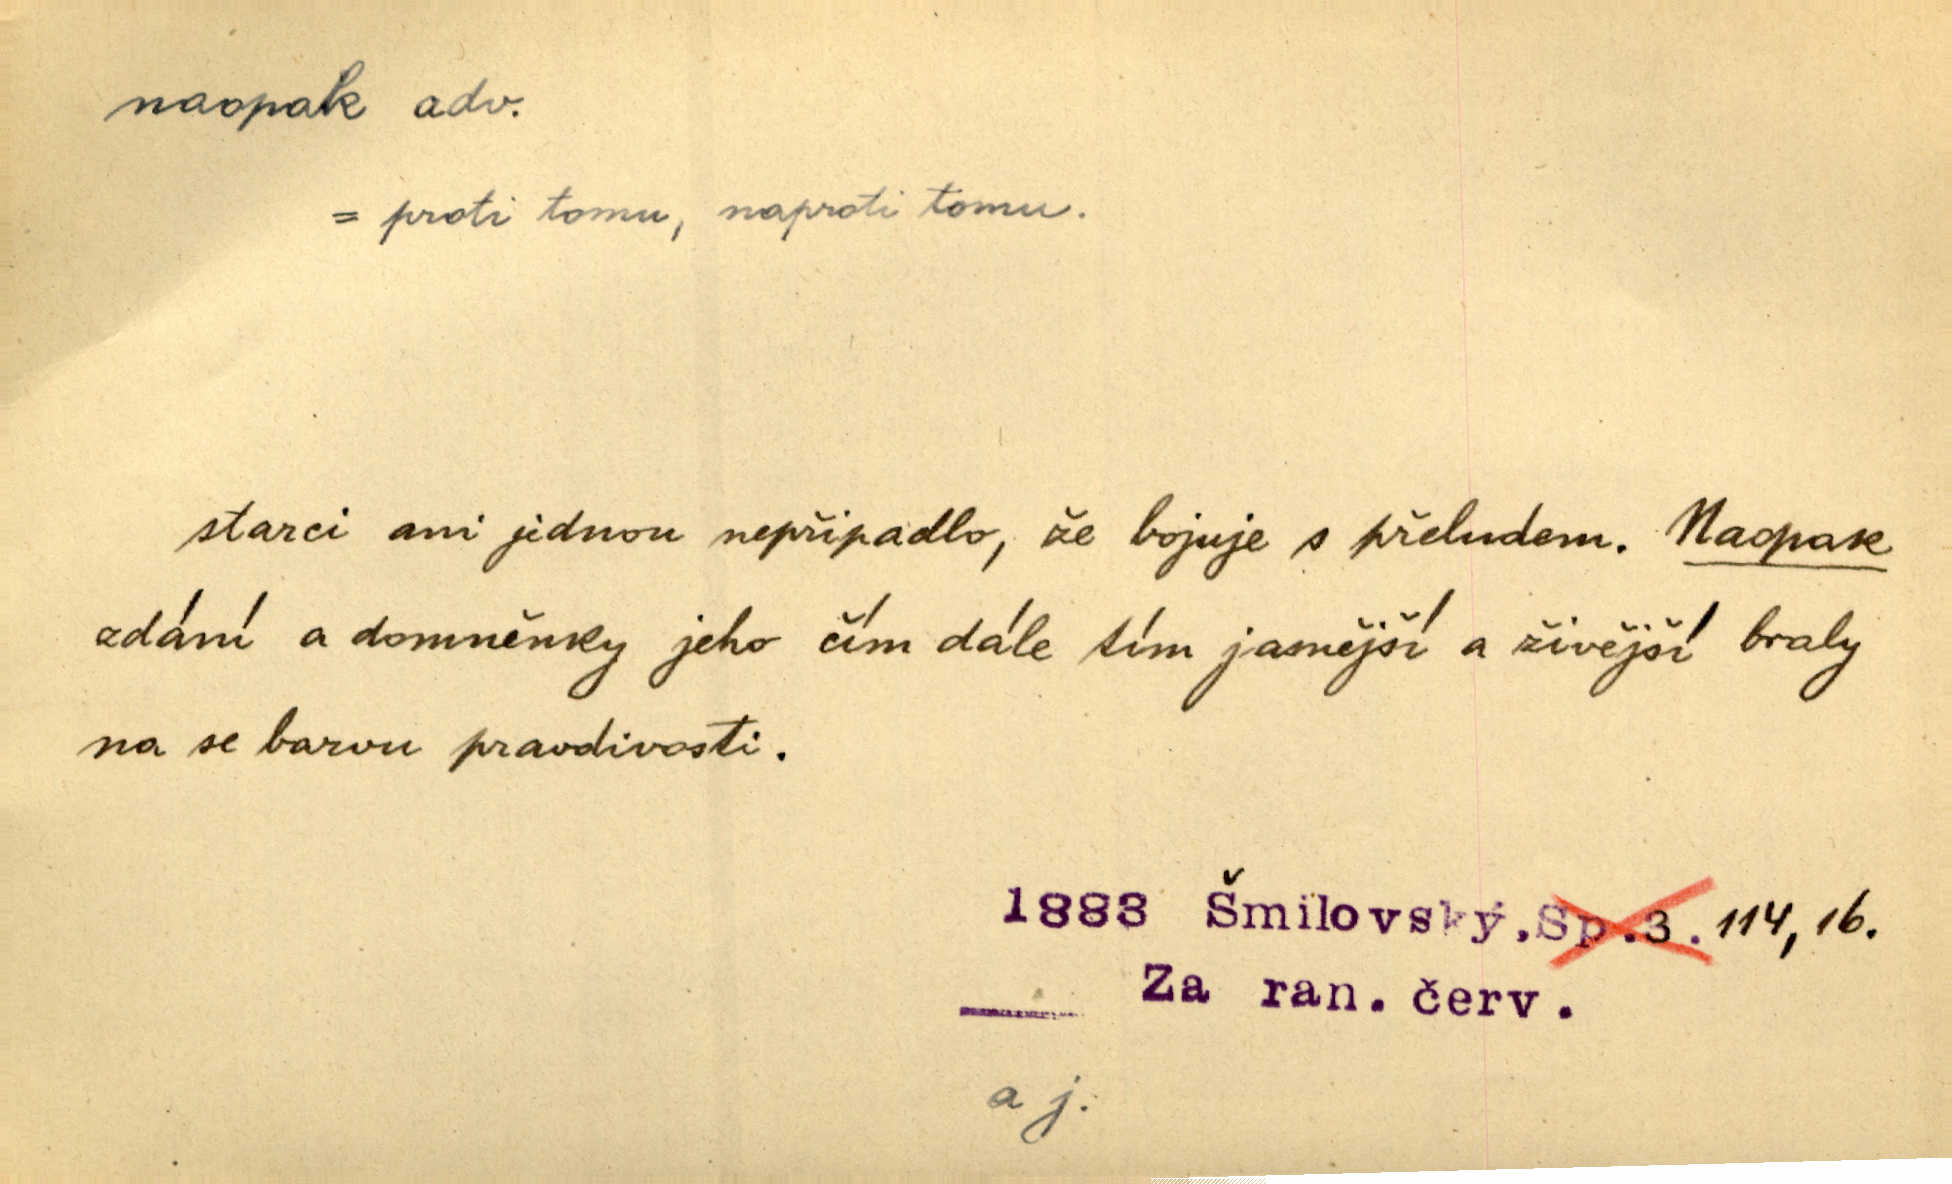 naopak adv.
= proti tomu, naproti tomu.
starci ani jednou nepřipadlo, že bojuje s přeludem. Naopak
zdání a domněnky jeho čím dále tím jasnější a živější braly
na se barvu pravdivosti.
1883 Šmilovský.Sp.3. 114, 16.
Za ran. červ.
a j.